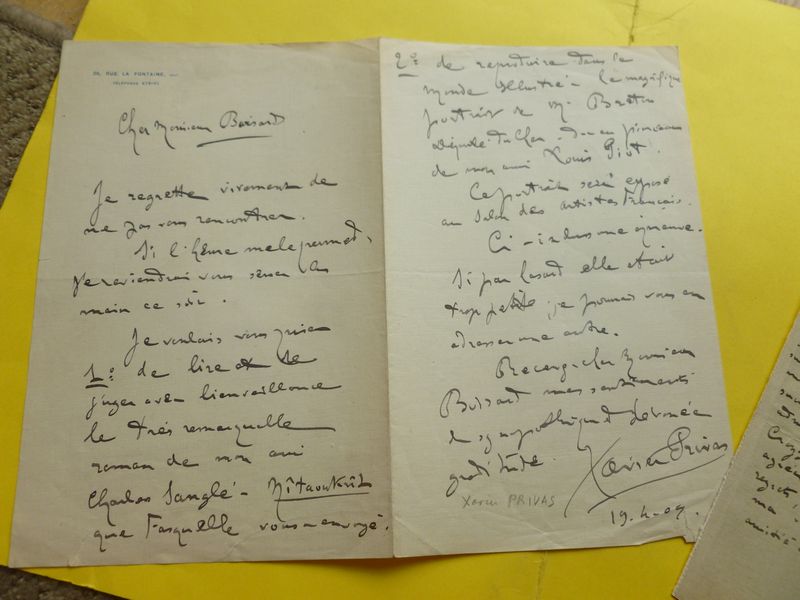 RUE LA FONTAINE,
TÉLÉPHONE
Cher Monsieur Boissard
Je regrette vivement de
ne pas vous rencontrer.
Si l'heure me le permet,
je reviendrai vous serrer la
main ce soir.
Je voulais vous prier
1º de lire et de
juger avec bienveillance
le très remarquable
roman de mon ami
Charles Sanglé -
que Fasquelle vous a envoyé.
2º de reproduire dans le
Monde Illustré - le magnifique
portrait de M. Breton
Député du Cher - du au pinceau
de mon ami Louis Piot.
Ce portrait sera exposé
au Salon des artistes Français.
Ci-inclus une épreuve.
Si par hasard elle était
trop petite, je pourrais vous en
adresser une autre.
Recevez cher Monsieur
Boissard mes sentiments
de sympathique et dévouée
gratitude.
Xavier Privas
Xavier PRIVAS
19.4.09.